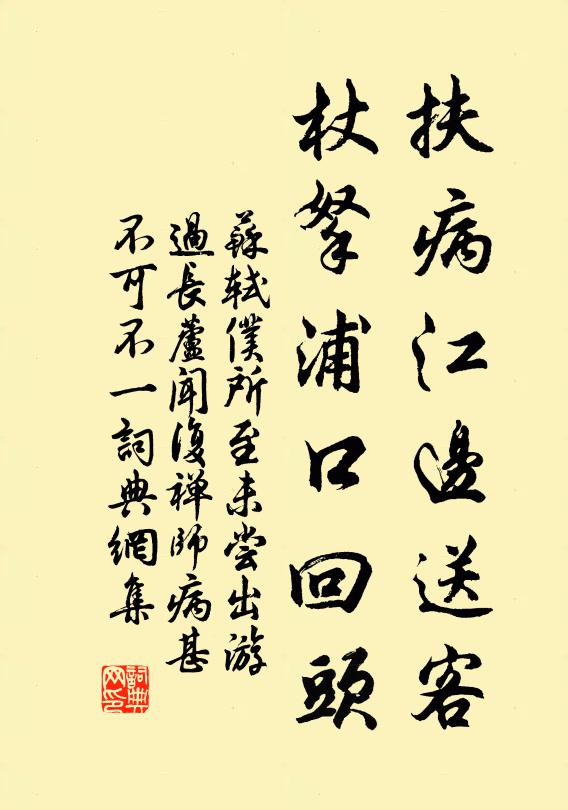 扶病江邊送客
杖拏浦口回頭
蘇軾僕所至未嘗出游
過長蘆聞復禅師病甚
不可不一詞典網集
詞典
网印